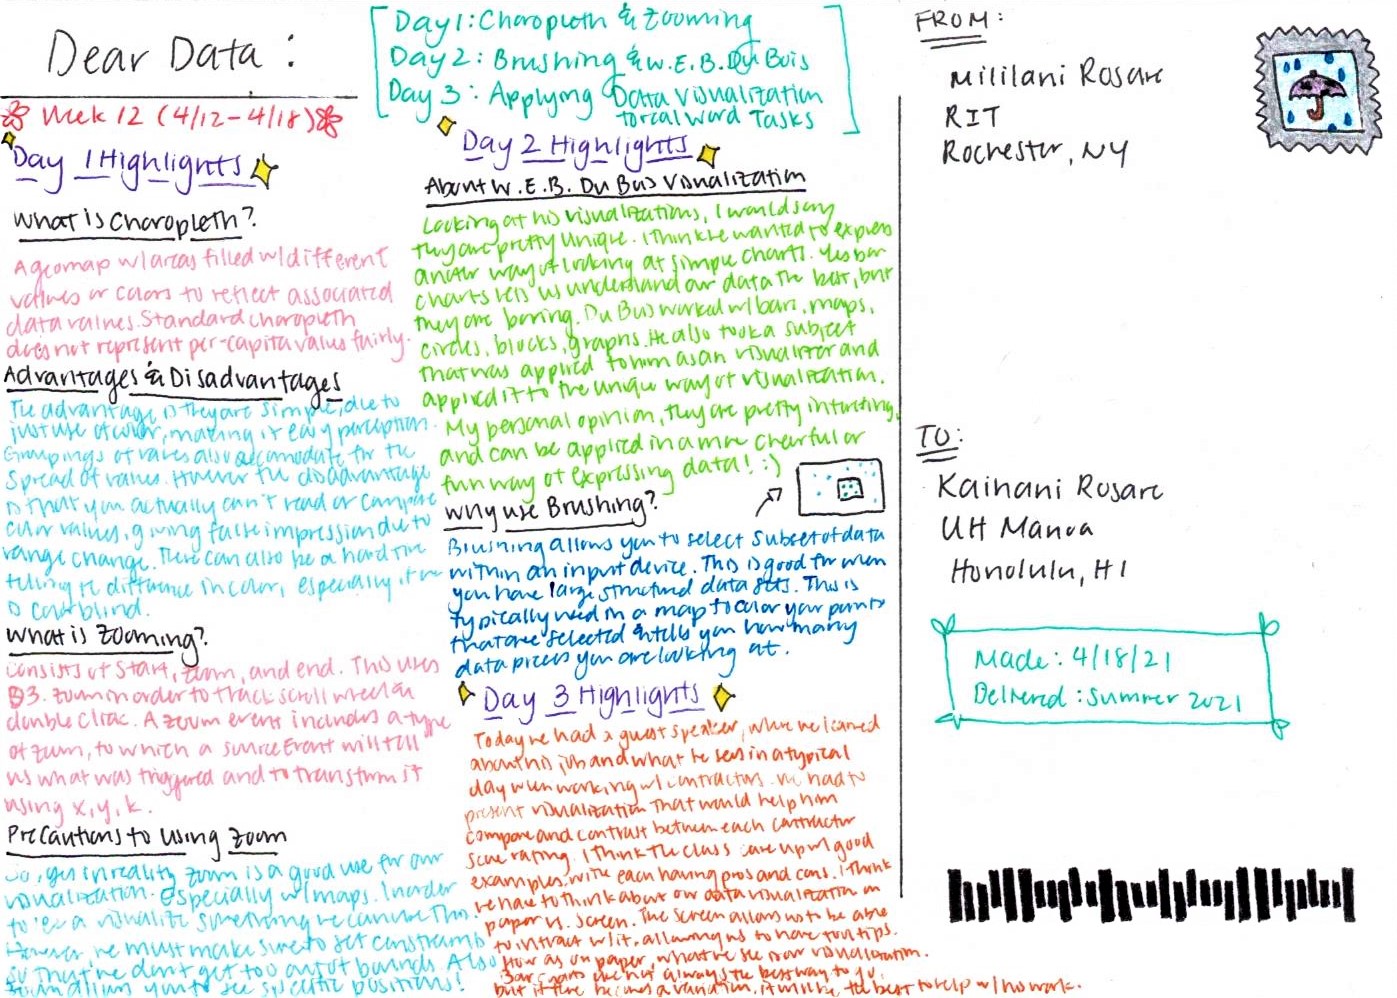 Dear Data:
Week 12 (4/12-4/18)
Day 1: Charopleth & Zooming
Day 2: Brushing & W.E.B. Du Bois
Day 3: Applying Data Visualization
to real word Tasks
Day 1 Highlights
What is Charopleth?
A geomap w/ areas filled w/ different
values or colors to reflect associated
data values. Standard charopleth
does not represent per-capita value fairly.
Advantages & Disadvantages
The advantage is they are simple, due to
just use of color, making it easy perception.
Groupings of values also accomodate for the
Spread of values. However the disadvantage
is that you actually can't read or compare
color values, giving false impression due to
range change. There can also be a hard time
telling the difference in color, especially if one
is colorblind.
What is Zooming?
Consists of Start, zoom, and end. This uses
D3.zoom in order to track scroll wheel or
double click. A zoom event includes a type
of zoom, to which a sourceEvent will tell
us what was triggered and to transform it
using x, y, k.
Precautions to Using Zoom
So, yes in reality zoom is a good use for our
visualization. Especially w/ maps. In order
to a visualize something we can use this.
However, we must make sure to set constraints
so that we don't get too out of bounds. Also
zoom allows you to see specific positions!
Day 2 Highlights
About W.E.B. Du Bois Visualization
Looking at his visualizations, I would say
they are pretty unique. I think he wanted to express
another way of looking at simple charts. Yes bar
charts lets us understand our data the best, but
they are boring. Du Bois worked w/ bars, maps,
circles, blocks, graphs. He also took a subject
that was applied to him as an visualizer and
applied it to the unique way of visualization.
My personal opinion, they are pretty interesting,
and can be applied in a more cheerful or
fun way of expressing data! :)
Why use Brushing?
Brushing allows you to select subset of data
within an input device. This is good for when
you have large structured data sets. This is
typically used in a map to color your points
that are selected & tells you how many
data pieces you are looking at.
Day 3 Highlights
Today we had a guest speaker, where we learned
about his job and what he sees in a typical
day when working w/ contractors. We had to
present visualization that would help him
compare and contrast between each contractor
score rating. I think the class came up w/ good
examples, with each having pros and cons. I think
we have to think about our data visualization on
paper vs. screen. The screen allows us to be able
to intract w/ it, allowing us to have tool tips.
as on paper, what we see is our visualization.
Bar charts are not always the best way to go,
but if there becomes a variation, it will be the best to help w/ his work.
FROM:
Mililani Rosare
RIT
Rochester, NY
TO:
Kainani Rosare
UH Manoa
Honolulu, HI
Made: 4/18/21
Delivered: Summer 2021